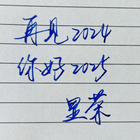 再见2024
你好2025
昱荣